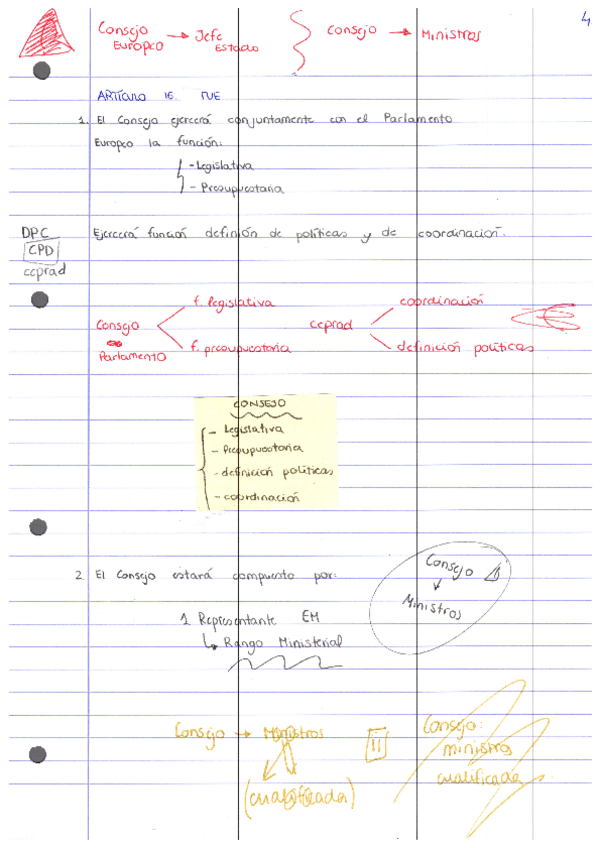 4
Consejo Europeo → Jefe Estado
Consejo → Ministros
ARTÍCULO 15. TUE
1. El Consejo ejercerá conjuntamente con el Parlamento
Europeo la función:
- Legislativa
- Presupuestaria
DPC
CPD
ccprad
Ejercerá función definión de políticas y de coordinación.
Consejo
Parlamento
f. legislativa
f. presupuestaria
ccprad
coordinación
definición políticas
CONSEJO
- Legislativa
- Presupuestaria
- definición políticas
- coordinación
2. El Consejo estará compuesto por:
1 Representante EM
↳ Rango Ministerial
Consejo
↓
Ministros
Consejo → Ministros
(cualificada)
11
Consejo:
ministro
cualificada